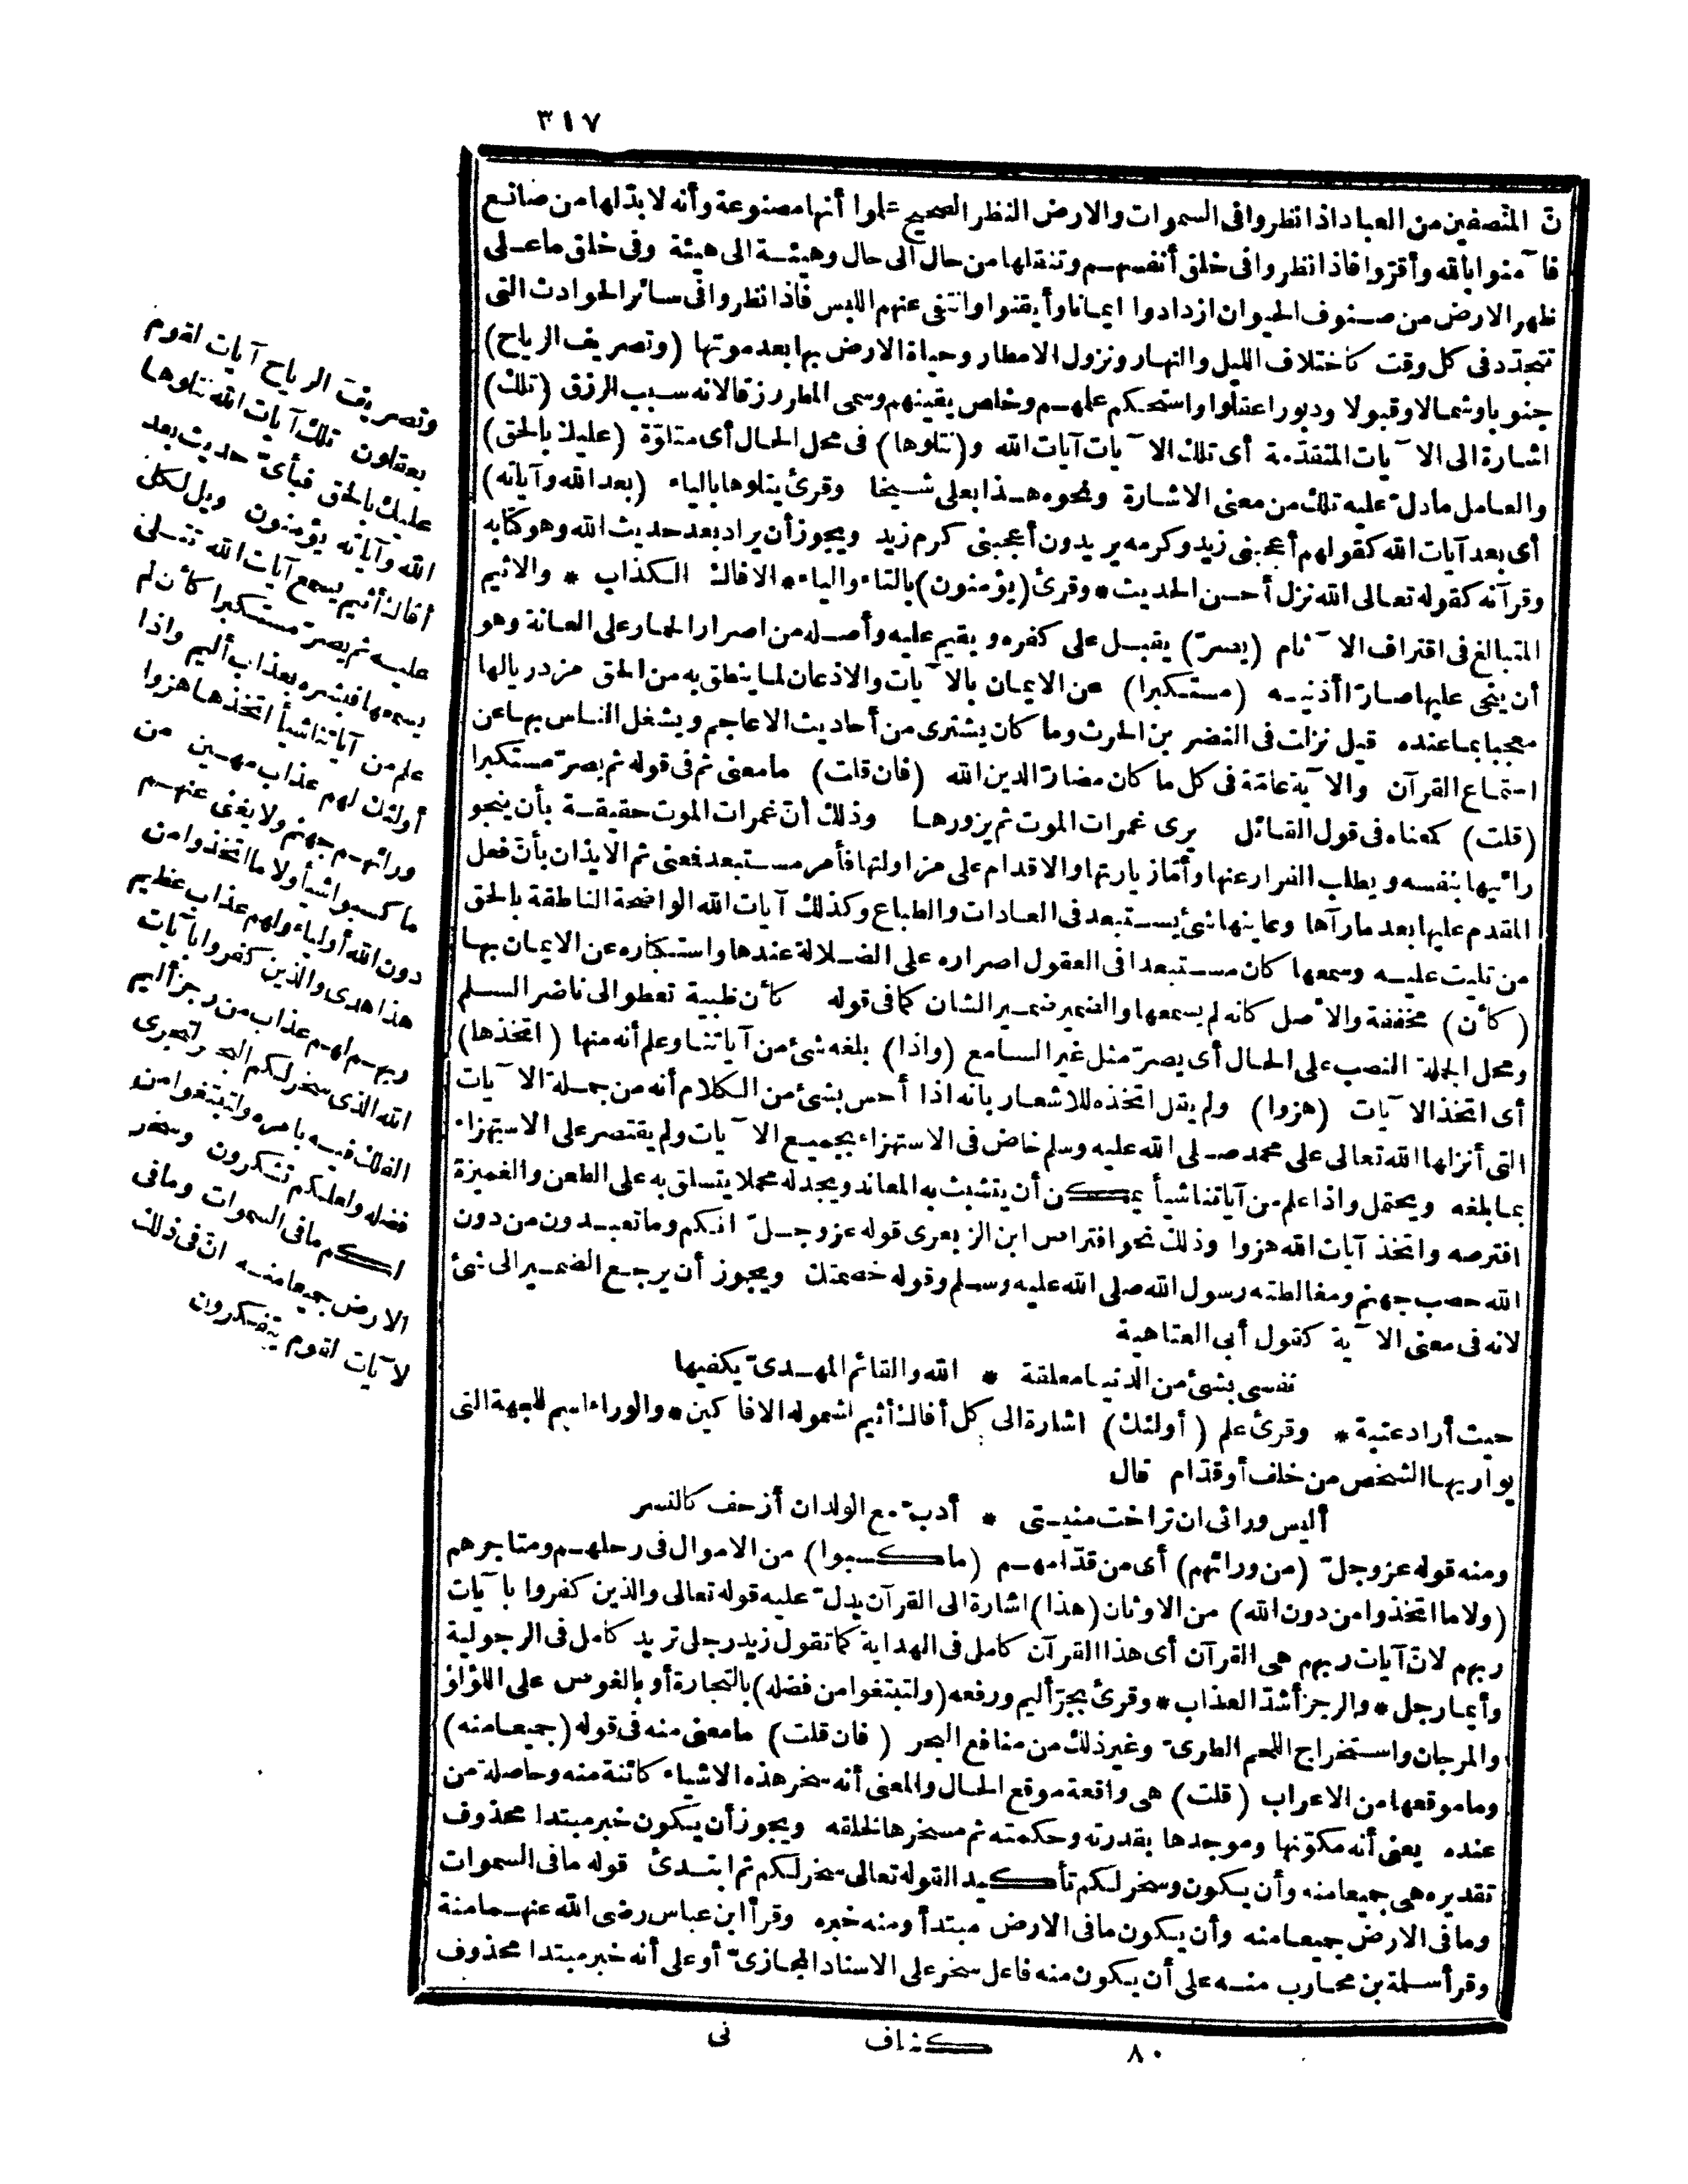 ٣١٧
نّ المنصفين من العباد اذا نظروا فى السموات والارض النظر الصحيح علموا أنها مصنوعة وأنه لابدّ لها من صانع
فآمنوا بالله وأقرّوا فاذا نظروا فى خلق أنفسهم وتنقلها من حال الى حال وهيئة الى هيئة وفى خلق ما على
ظهر الارض من صنوف الحيوان ازدادوا ايمانا وأيقنوا وانتفى عنهم اللبس فاذا نظروا فى سائر الحوادث التى
تتجدّد فى كل وقت كاختلاف الليل والنهار ونزول الامطار وحياة الارض بها بعد موتها (وتصريف الرياح)
جنوبا وشمالا وقبولا ودبورا عقلوا واستحكم علمهم وخلص يقينهم وسمى المطر رزقا لانه سبب الرزق (تلك)
اشارة الى الآيات المتقدّمة أى تلك الآيات آيات الله و(نتلوها) فى محل الحال أى متلوّة (عليك بالحق)
والعامل مادلّ عليه تلك من معنى الاشارة ونحوه هذا بعلى شيخا وقرئ يتلوها بالياء (بعد الله وآياته)
أى بعد آيات الله كقولهم أعجبنى زيد وكرمه يريدون أعجبنى كرم زيد ويجوز أن يراد بعد حديث الله وهو كتابه
وقرآنه كقوله تعالى الله نزل أحسن الحديث * وقرئ (يؤمنون) بالتاء والياء * الافاك الكذاب * والاثيم
المتبالغ فى اقتراف الآثام (يصرّ) يقبل على كفره ويقيم عليه وأصله من اصرار الحمار على العانة وهو
أن ينحى عليها صارّا أذنيه (مستكبرا) عن الايمان بالآيات والاذعان لما ينطق به من الحق مزدريا لها
معجبا بما عنده قيل نزلت فى النضر بن الحرث وما كان يشترى من أحاديث الاعاجم ويشغل الناس بها عن
استماع القرآن والآية عامّة فى كل ما كان مضارّا لدين الله (فان قلت) ما معنى ثم فى قوله ثم يصرّ مستكبرا
(قلت) كمعناه فى قول القائل يرى غمرات الموت ثم يزورها وذلك أنّ غمرات الموت حقيقة بأن ينجو
رائيها بنفسه ويطلب الفرار عنها وأمّا زيارتها والاقدام على مزاولتها فأمر مستبعد فمعنى ثم الايذان بأنّ فعل
المقدم عليها بعد ما رآها وعاينها شئ يستبعد فى العادات والطباع وكذلك آيات الله الواضحة الناطقة بالحق
من تليت عليه وسمعها كان مستبعدا فى العقول اصراره على الضلالة عندها واستكباره عن الايمان بها
(كأن) مخففة والاصل كانه لم يسمعها والضمير ضمير الشان كما فى قوله كأن ظبية تعطو الى ناضر السلم
ومحل الجملة النصب على الحال أى يصرّ مثل غير السامع (واذا) بلغه شئ من آياتنا وعلم أنه منها (اتخذها)
أى اتخذ الآيات (هزوا) ولم يقل اتخذه للاشعار بانه اذا أحس بشئ من الكلام أنه من جملة الآيات
التى أنزلها الله تعالى على محمد صلى الله عليه وسلم خاض فى الاستهزاء بجميع الآيات ولم يقتصر على الاستهزاء
بما بلغه ويحتمل واذا علم من آياتنا شيأ يمكن أن يتشبث به المعاند ويجد له محملا يتسلق به على الطعن والغميزة
افترصه واتخذ آيات الله هزوا وذلك نحو افتراص ابن الزبعرى قوله عز وجلّ انكم وما تعبدون من دون
الله حصب جهنم ومغالطته رسول الله صلى الله عليه وسلم وقوله خصمتك ويجوز أن يرجع الضمير الى شئ
لانه فى معنى الآية كقول أبى العتاهية
نفسى بشئ من الدنيا معلقة * الله والقائم المهدىّ يكفيها
حيث أراد عتبة * وقرئ علم (أولئك) اشارة الى كل أفاك أثيم لشموله الافاكين * والوراء اسم للجهة التى
يواريها الشخص من خلف أو قدّام قال
أليس ورائى ان تراخت منيتى * أدبّ مع الولدان أزحف كالنسر
ومنه قوله عز وجلّ (من ورائهم) أى من قدّامهم (ما كسبوا) من الاموال فى رحلهم ومتاجرهم
(ولا ما اتخذوا من دون الله) من الاوثان (هذا) اشارة الى القرآن يدلّ عليه قوله تعالى والذين كفروا بآيات
ربهم لانّ آيات ربهم هى القرآن أى هذا القرآن كامل فى الهداية كما تقول زيد رجل تريد كامل فى الرجولية
وأيما رجل * والرجز أشدّ العذاب * وقرئ بجرّ أليم ورفعه (ولتبتغوا من فضله) بالتجارة أو بالغوص على اللؤلؤ
والمرجان واستخراج اللحم الطرىّ وغير ذلك من منافع البحر (فان قلت) ما معنى منه فى قوله (جميعا منه)
وما موقعها من الاعراب (قلت) هى واقعة موقع الحال والمعنى أنه سخر هذه الاشياء كائنة منه وحاصلة من
عنده يعنى أنه مكوّنها وموجدها بقدرته وحكمته ثم مسخرها لخلقه ويجوز أن يكون خبر مبتدا محذوف
تقديره هى جميعا منه وأن يكون وسخر لكم تأكيدا لقوله تعالى سخر لكم ثم ابتدئ قوله ما فى السموات
وما فى الارض جميعا منه وأن يكون ما فى الارض مبتدأ ومنه خبره وقرأ ابن عباس رضى الله عنهما منة
وقرأ سلمة بن محارب منه على أن يكون منه فاعل سخر على الاسناد المجازىّ أو على أنه خبر مبتدا محذوف
وتصريف الرياح آيات لقوم
يعقلون تلك آيات الله نتلوها
عليك بالحق فبأىّ حديث بعد
الله وآياته يؤمنون ويل لكل
أفاك أثيم يسمع آيات الله تتلى
عليه ثم يصرّ مستكبرا كأن لم
يسمعها فبشره بعذاب أليم واذا
علم من آياتنا شيأ اتخذها هزوا
أولئك لهم عذاب مهين من
ورائهم جهنم ولا يغنى عنهم
ما كسبوا شيأ ولا ما اتخذوا من
دون الله أولياء ولهم عذاب عظيم
هذا هدى والذين كفروا بآيات
ربهم لهم عذاب من رجز أليم
الله الذى سخر لكم البحر لتجرى
الفلك فيه بامره ولتبتغوا من
فضله ولعلكم تشكرون وسخر
لكم ما فى السموات وما فى
الارض جميعا منه انّ فى ذلك
لآيات لقوم يتفكرون
٨٠ كشاف نى